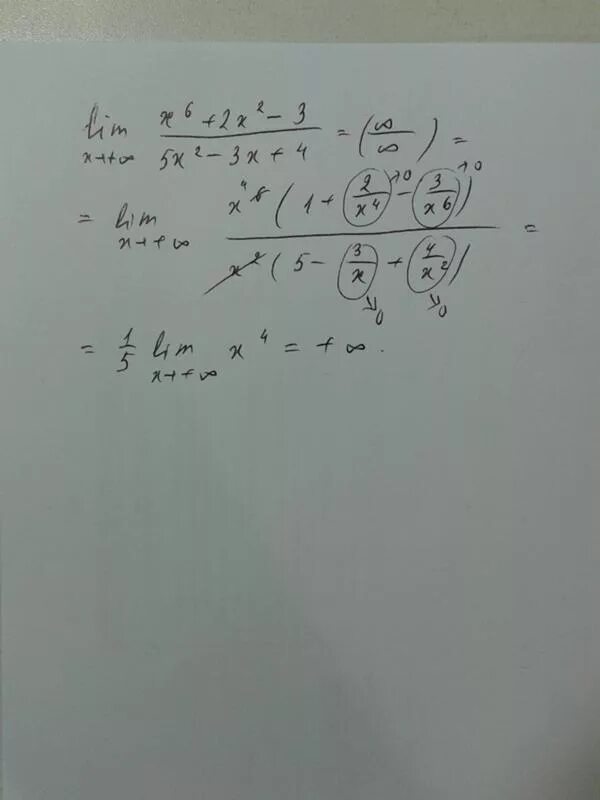 lim x→+∞ (x⁶ + 2x² − 3)/(5x² − 3x + 4) = (∞/∞) =
= lim x→+∞ (x⁴ ⁶ (1 + 2/x⁴ →0 − 3/x⁶ →0))/(x² (5 − 3/x →0 + 4/x² →0)) =
= 1/5 lim x→+∞ x⁴ = +∞.